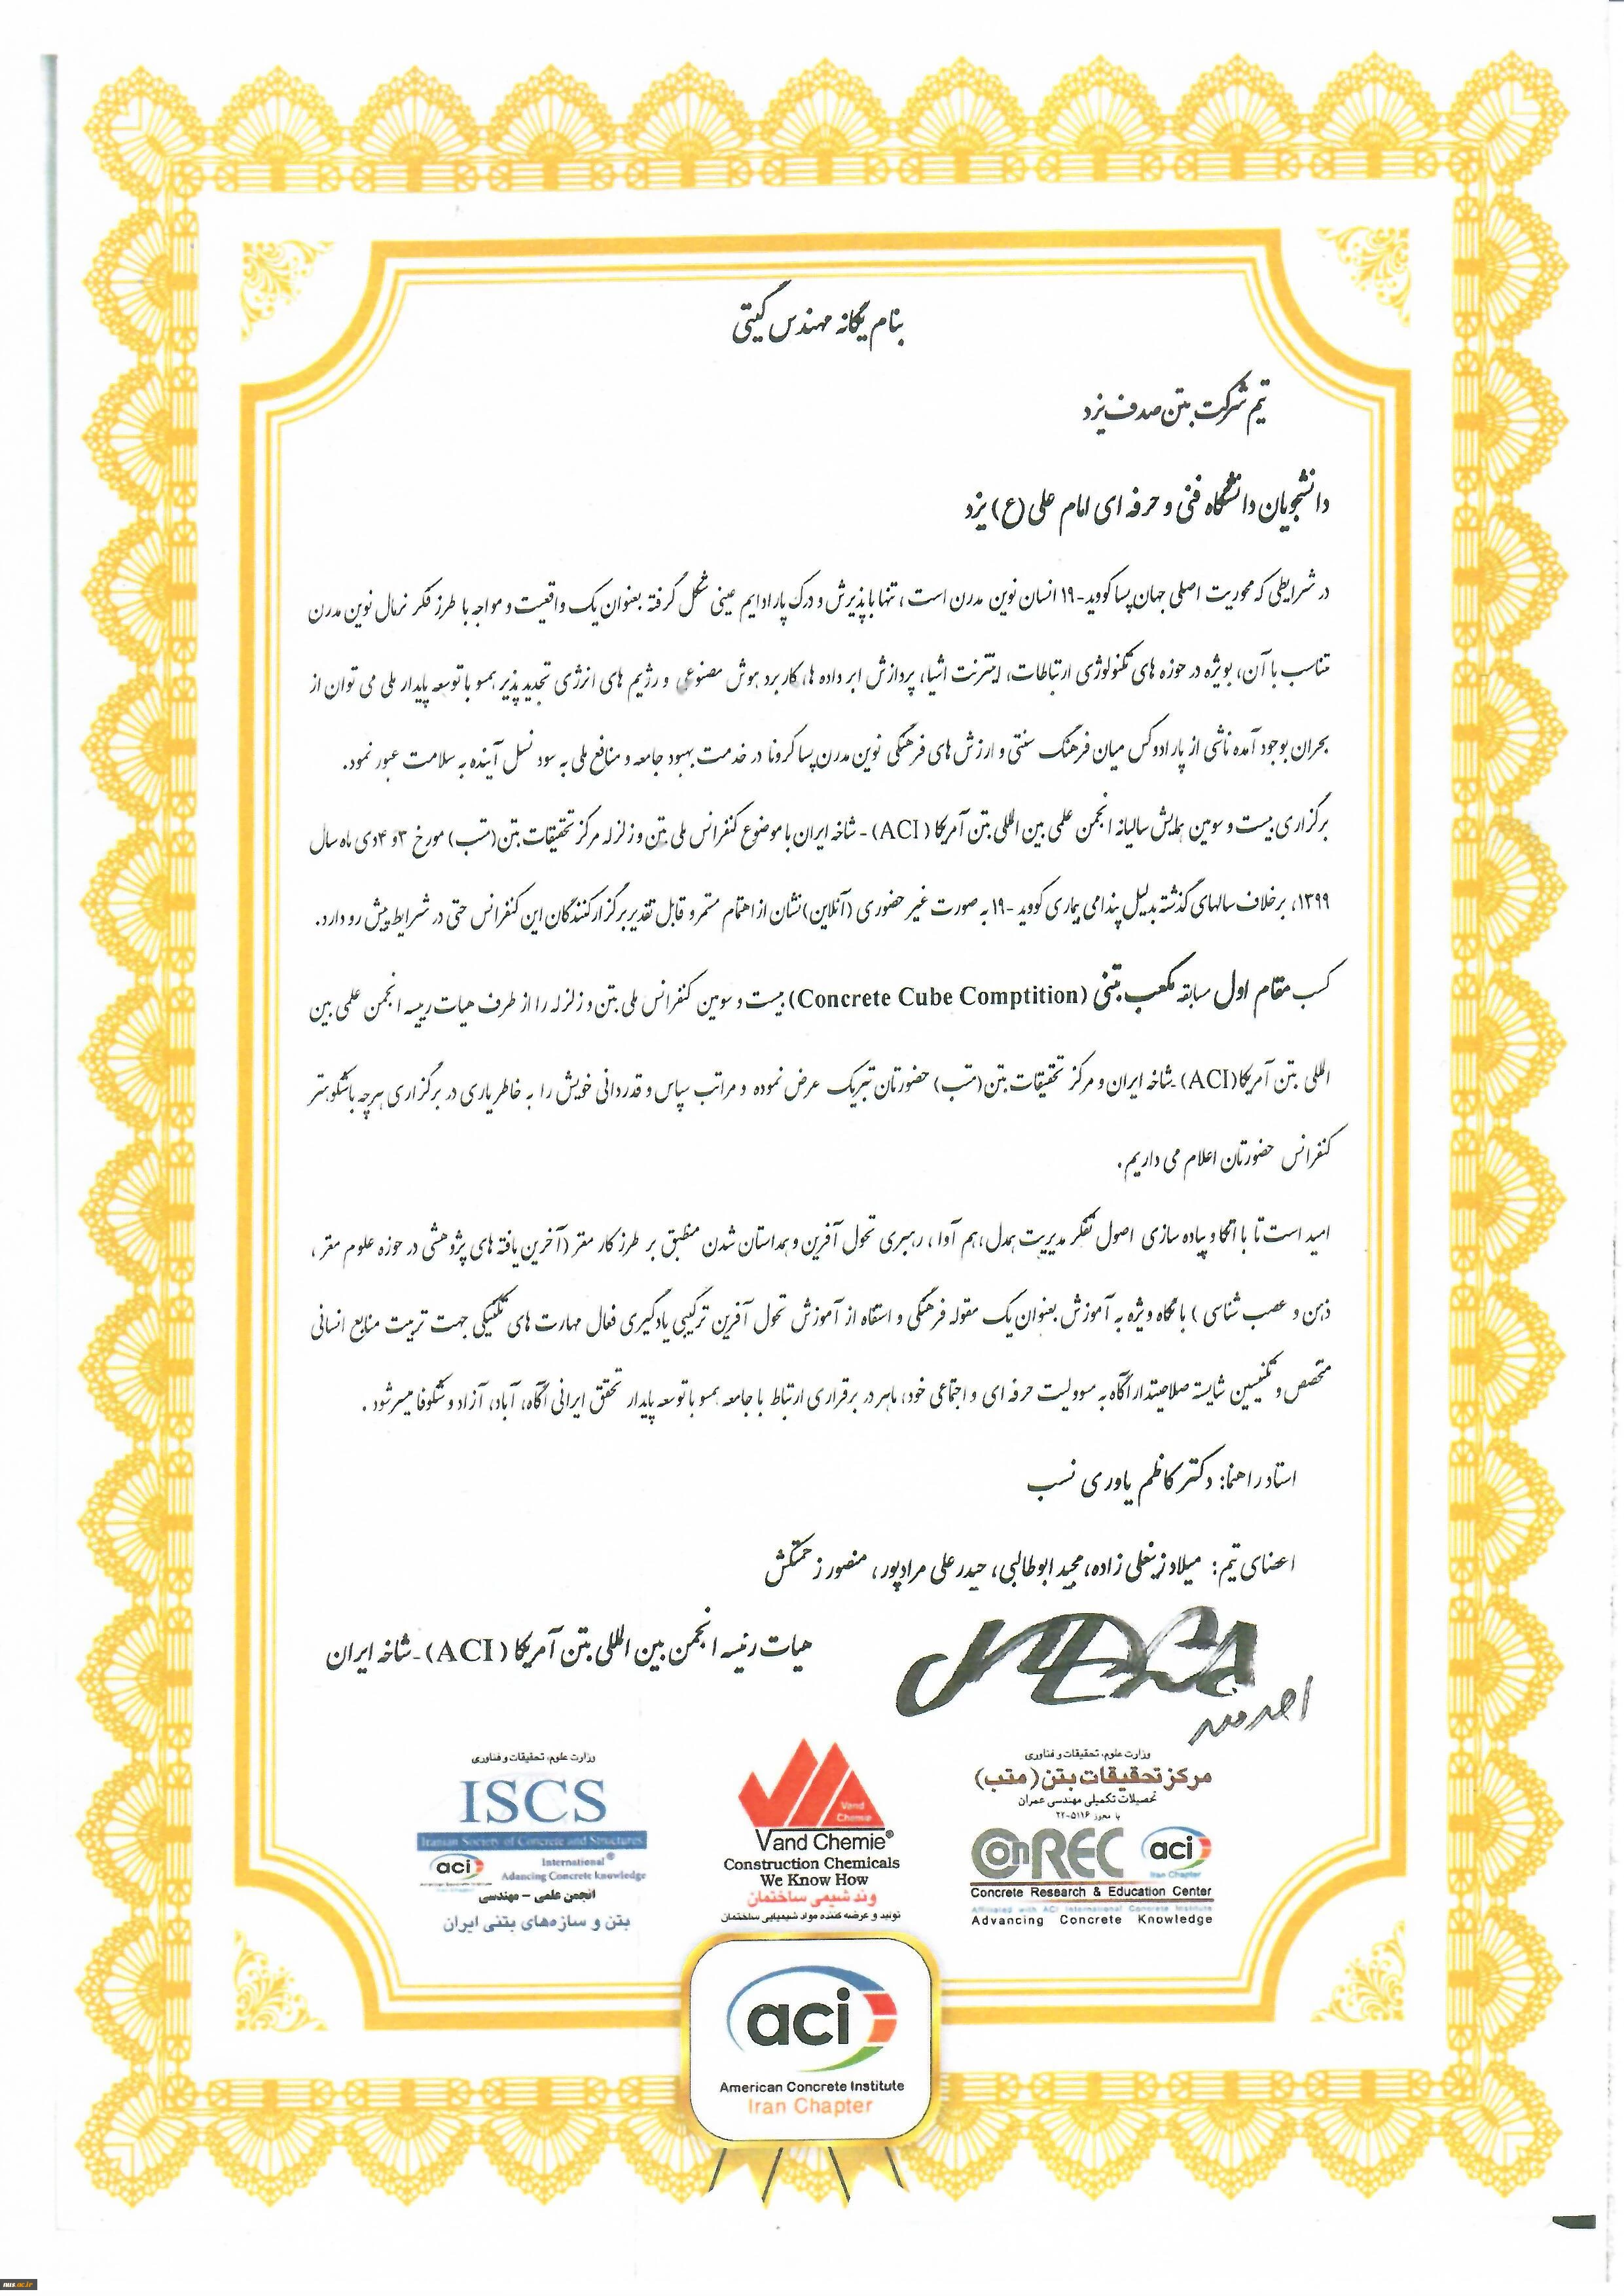 بنام یگانه مهندس گیتی
تیم شرکت بتن صدف یزد
دانشجویان دانشگاه فنی و حرفه ای امام علی (ع) یزد
در شرایطی که محوریت اصلی جهان پسا کووید-۱۹ انسان نوین مدرن است، تنها با پذیرش و درک پارادایم عینی شکل گرفته بعنوان یک واقعیت و مواجه با طرز فکر نرمال نوین مدرن
متناسب با آن، بویژه در حوزه های تکنولوژی ارتباطات، اینترنت اشیا، پردازش ابر داده ها، کاربرد هوش مصنوعی و رژیم های انرژی تجدید پذیر همسو با توسعه پایدار ملی می توان از
بحران بوجود آمده ناشی از پارادوکس میان فرهنگ سنتی و ارزش های فرهنگی نوین مدرن پسا کرونا در خدمت بهبود جامعه و منافع ملی به سود نسل آینده به سلامت عبور نمود.
برگزاری بیست و سومین همایش سالیانه انجمن علمی بین المللی بتن آمریکا (ACI) - شاخه ایران با موضوع کنفرانس ملی بتن و زلزله مرکز تحقیقات بتن (متب) مورخ ۳ و ۴ دی ماه سال
۱۳۹۹، برخلاف سالهای گذشته بدلیل پندامی بیماری کووید -۱۹ به صورت غیر حضوری (آنلاین) نشان از اهتمام مستمر و قابل تقدیر برگزارکنندگان این کنفرانس حتی در شرایط پیش رو دارد.
کسب مقام اول مسابقه مکعب بتنی (Concrete Cube Comptition) بیست و سومین کنفرانس ملی بتن و زلزله را از طرف هیات رییسه انجمن علمی بین
المللی بتن آمریکا (ACI) - شاخه ایران و مرکز تحقیقات بتن (متب) حضورتان تبریک عرض نموده و مراتب سپاس و قدردانی خویش را به خاطر یاری در برگزاری هرچه باشکوهتر
کنفرانس حضورتان اعلام می داریم.
امید است تا با اتکا و پیاده سازی اصول تفکر مدیریت همدل، هم آوا، رهبری تحول آفرین و همداستان شدن منطبق بر طرز کار مغز (آخرین یافته های پژوهشی در حوزه علوم مغز،
ذهن و عصب شناسی) با نگاه ویژه به آموزش بعنوان یک مقوله فرهنگی و استفاه از آموزش تحول آفرین ترکیبی یادگیری فعال مهارت های تکنیکی جهت تربیت منابع انسانی
متخصص و تکنیسین شایسته صلاحیتدار آگاه به مسوولیت حرفه ای و اجتماعی خود، ماهر در برقراری ارتباط با جامعه همسو با توسعه پایدار تحقق ایرانی آگاه، آباد، آزاد و شکوفا میسر شود.
استاد راهنما: دکتر کاظم یاوری نسب
اعضای تیم: میلاد زینعلی زاده، مجید ابوطالبی، حیدر علی مرادپور، منصور زحمتکش
هیات رئیسه انجمن بین المللی بتن آمریکا (ACI) - شاخه ایران
وزارت علوم، تحقیقات و فناوری
مرکز تحقیقات بتن (متب)
تحصیلات تکمیلی مهندسی عمران
با مجوز ۵۱۱۶-۲۲
ConREC aci
Iran Chapter
Concrete Research & Education Center
Affiliated with ACI International Concrete Institute
Advancing Concrete Knowledge
Vand Chemie
Vand Chemie®
Construction Chemicals
We Know How
وند شیمی ساختمان
تولید و عرضه کننده مواد شیمیایی ساختمان
وزارت علوم، تحقیقات و فناوری
ISCS
Iranian Society of Concrete and Structures
aci International®
Adancing Concrete knowledge
انجمن علمی - مهندسی
بتن و سازه‌های بتنی ایران
aci
American Concrete Institute
Iran Chapter
nus.ac.ir